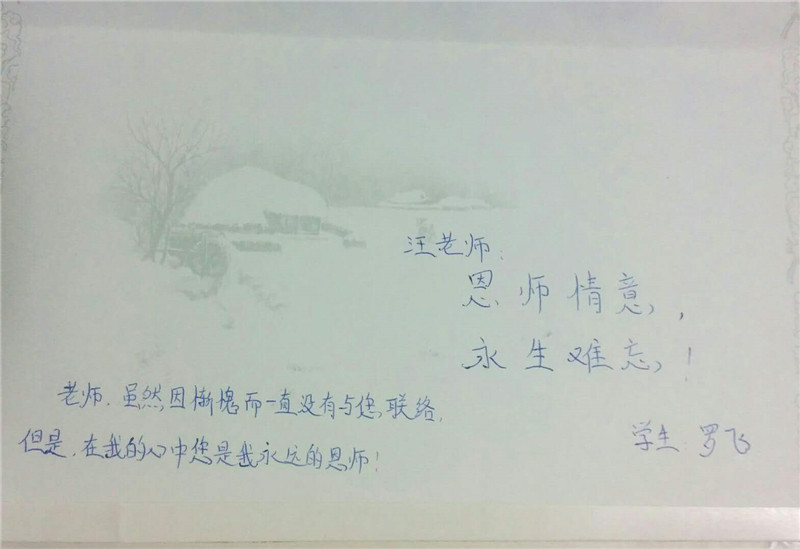 汪老师:
恩师情意,
永生难忘!
老师,虽然因惭愧而一直没有与您联络,
但是,在我的心中您是我永远的恩师!
学生:罗飞